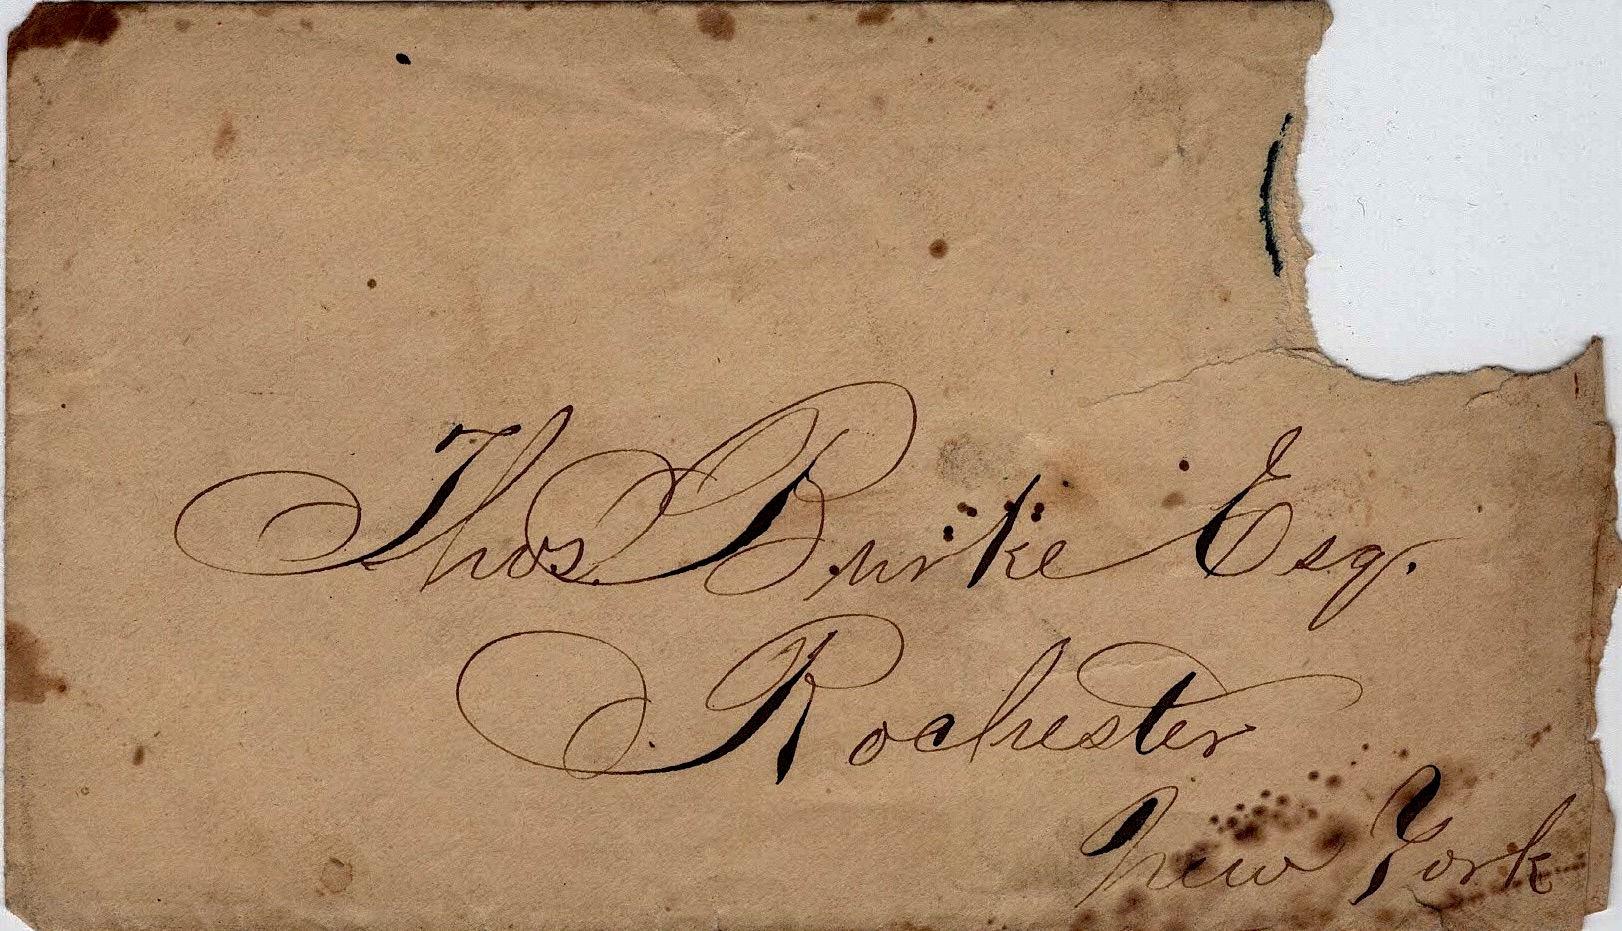 Thos. Burke Esq.
Rochester
New York